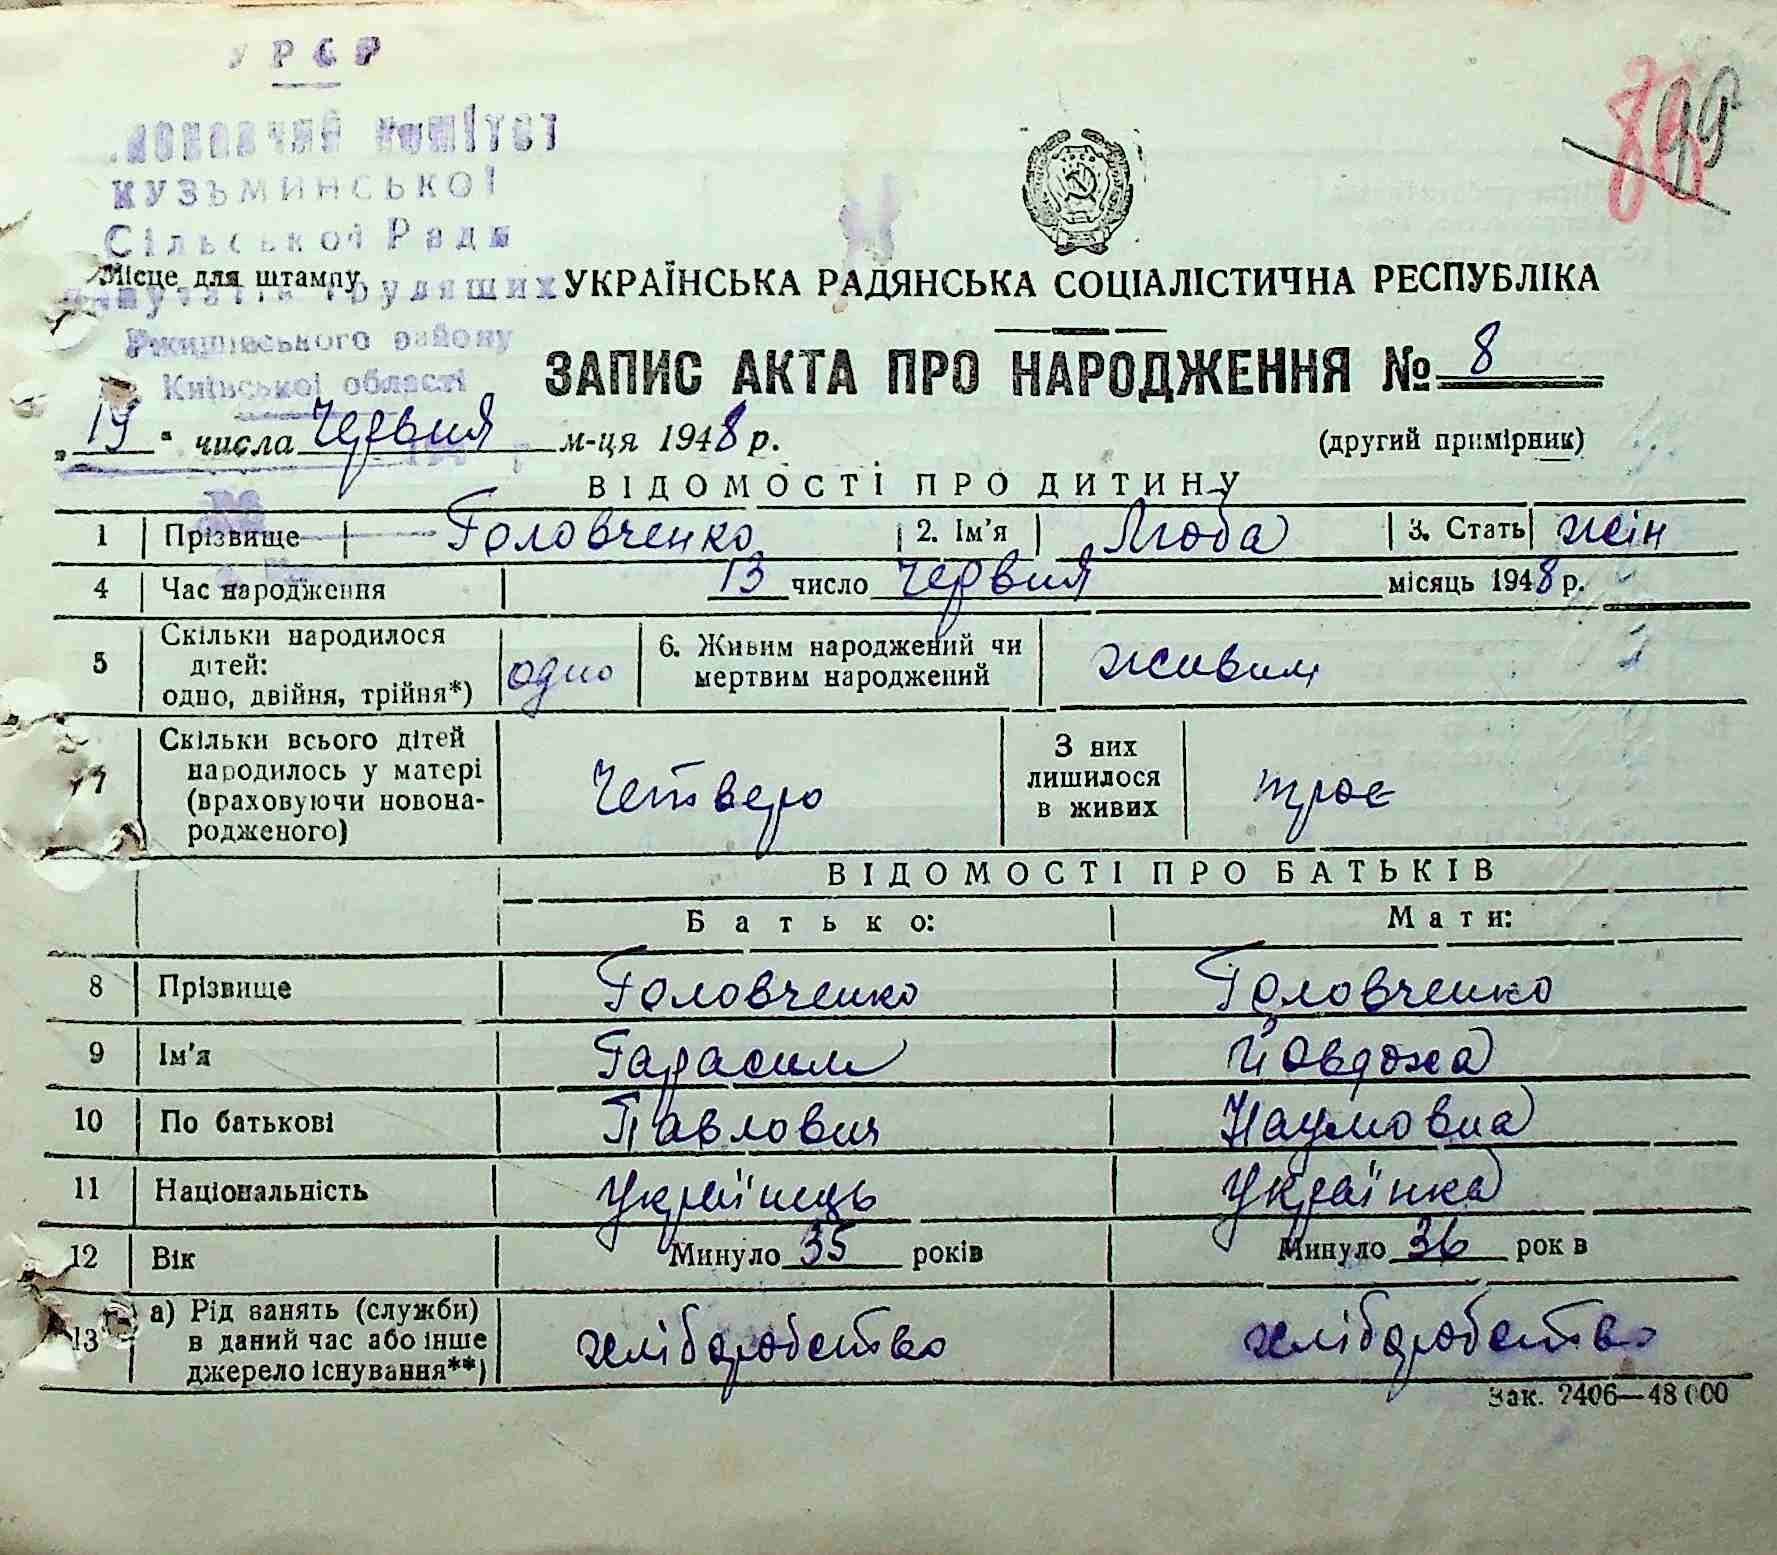 УРСР
КОМІТЕТ
КУЗЬМИНСЬКОЇ
Сільської Ради
Місце для штампу
трудящих
Ржищівського району
Київської області
88
99
УКРАЇНСЬКА РАДЯНСЬКА СОЦІАЛІСТИЧНА РЕСПУБЛІКА
ЗАПИС АКТА ПРО НАРОДЖЕННЯ № 8
„19" числа Червня м-ця 1948 р.
(другий примірник)
ВІДОМОСТІ ПРО ДИТИНУ
1 Прізвище Головченко 2. Ім'я Люба 3. Стать жін
4 Час народження 13 число Червня місяць 1948 р.
5 Скільки народилося дітей: одно, двійня, трійня*) одно 6. Живим народжений чи мертвим народжений живим
7 Скільки всього дітей народилось у матері (враховуючи новонародженого) Четверо З них лишилося в живих троє
ВІДОМОСТІ ПРО БАТЬКІВ
Батько: Мати:
8 Прізвище Головченко Головченко
9 Ім'я Гарасим Йовдоха
10 По батькові Павлович Наумовна
11 Національність Українець Українка
12 Вік Минуло 35 років Минуло 36 рок в
13 а) Рід занять (служби) в даний час або інше джерело існування**) хліборобство хліборобство
Зак. 2406—48000